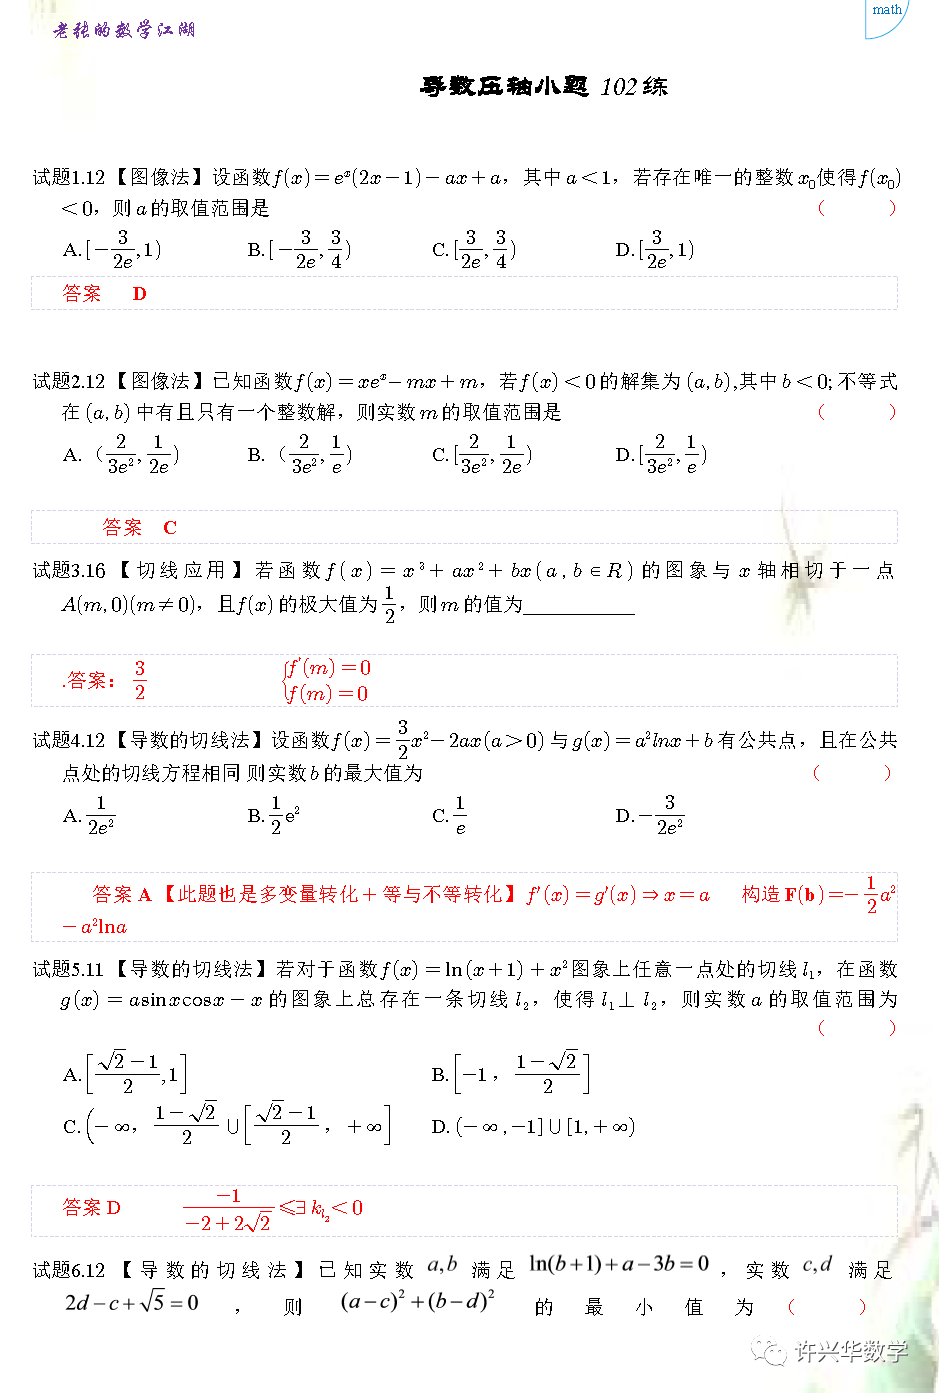 老张的数学江湖
math
导数压轴小题 102练
试题1.12【图像法】设函数f(x)=eˣ(2x-1)-ax+a，其中a<1，若存在唯一的整数x₀使得f(x₀)
<0，则a的取值范围是 （ ）
A.[-3/2e,1) B.[-3/2e,3/4) C.[3/2e,3/4) D.[3/2e,1)
答案 D
试题2.12【图像法】已知函数f(x)=xeˣ-mx+m，若f(x)<0的解集为(a,b),其中b<0;不等式
在(a,b)中有且只有一个整数解，则实数m的取值范围是 （ ）
A.(2/3e²,1/2e) B.(2/3e²,1/e) C.[2/3e²,1/2e) D.[2/3e²,1/e)
答案 C
试题3.16【切线应用】若函数f(x)=x³+ax²+bx(a,b∈R)的图象与x轴相切于一点
A(m,0)(m≠0)，且f(x)的极大值为1/2，则m的值为____________
.答案：3/2 {f′(m)=0 f(m)=0
试题4.12【导数的切线法】设函数f(x)=3/2x²-2ax(a>0)与g(x)=a²lnx+b有公共点，且在公共
点处的切线方程相同 则实数b的最大值为 （ ）
A.1/2e² B.1/2e² C.1/e D.-3/2e²
答案A【此题也是多变量转化+等与不等转化】f′(x)=g′(x)⇒x=a 构造F(b)=-1/2a²
-a²lna
试题5.11【导数的切线法】若对于函数f(x)=ln(x+1)+x²图象上任意一点处的切线l₁，在函数
g(x)=asinxcosx-x的图象上总存在一条切线l₂，使得l₁⊥l₂，则实数a的取值范围为
（ ）
A.[(√2-1)/2,1] B.[-1，(1-√2)/2]
C.(-∞，(1-√2)/2∪[(√2-1)/2，+∞] D.(-∞,-1]∪[1,+∞)
答案D -1/(-2+2√2)≤∃k_l₂<0
试题6.12【导数的切线法】已知实数 a,b 满足 ln(b+1)+a-3b=0，实数 c,d 满足
2d-c+√5=0，则 (a-c)²+(b-d)² 的最小值为（ ）
许兴华数学